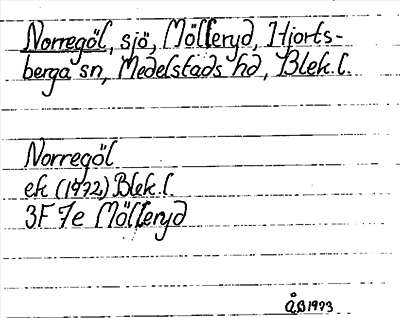 Norregöl, sjö, Mölleryd, Hjorts-
berga sn, Medelstads hd, Blek. l.
Norregöl
ek (1972) Blek. l.
3F 7e Mölleryd
ÅB 1973